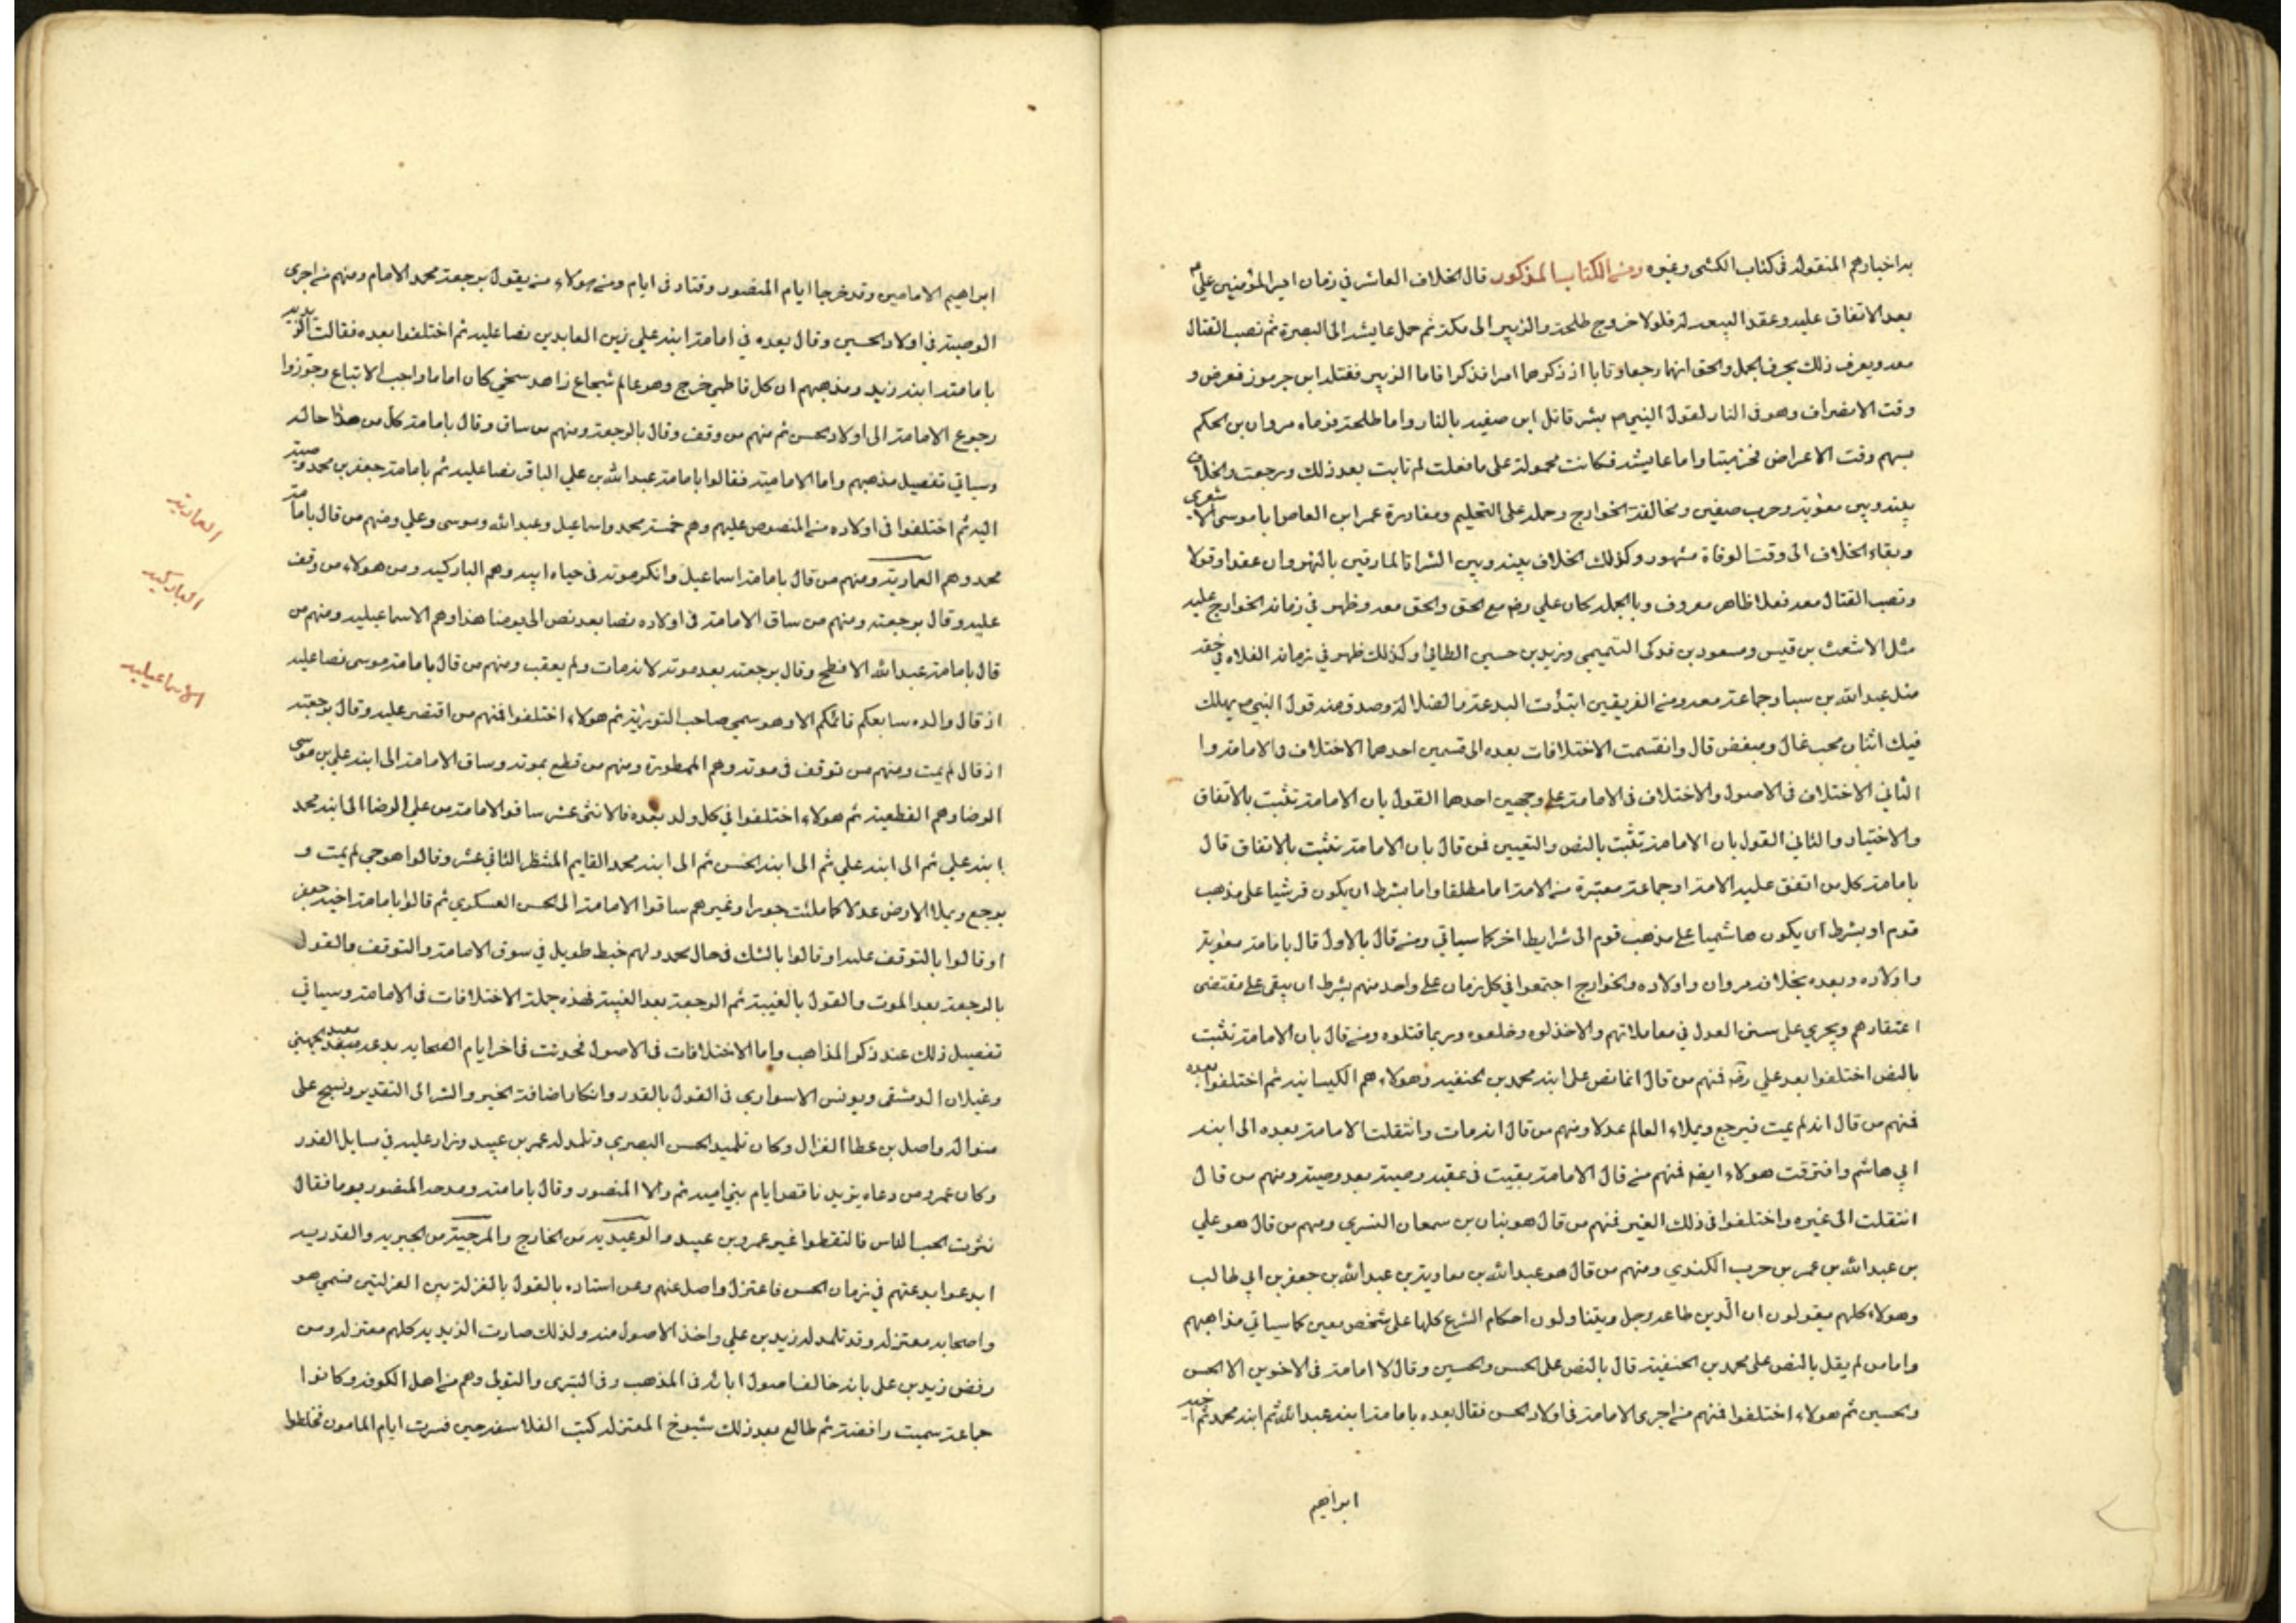 به اخبارهم المنقولة فى كتاب الكشى وغيره ومن الكتاب المذكور قال الخلاف العاشر في زمان امير المؤمنين علي ع
بعد الاتفاق عليه وعقد البيعة له فاولا خروج طلحة والزبير الى مكة ثم حمل عايشه الى البصرة ثم نصب القتال
معه ويعرف ذلك بحرب الجمل والحق انهما رجعا وتابا اذ ذكرهما امرا فذكرا فاما الزبير فقتله ابن جرموز فعرض و
وقت الانصراف وهو فى النار لقول النبي ص بشر قاتل ابن صفيه بالنار واما طلحة فرماه مروان بن الحكم
بسهم وقت الاعراض فخر ميتا واما عايشه فكانت محمولة على ما فعلت ثم تابت بعد ذلك ورجعت والخلاف
بينه وبين معوية وحرب صفين ومخالفة الخوارج وحمله على التحكيم ومغادرة عمر ابن العاص ابا موسى الاشعرى
وبقاء الخلاف الى وقت الوفاة مشهور وكذلك الخلاف بينه وبين الشراة المارقين بالنهروان عقدا وقولا
ونصب القتال معه فعلا ظاهر معروف وبالجملة كان علي رضه مع الحق والحق معه وظهر في زمانه الخوارج عليه
مثل الاشعث بن قيس ومسعود بن فدكى التميمي وزيد بن حسين الطائي وكذلك ظهر في زمانه الغلاة في حقه
مثل عبد الله بن سبا وجماعة معه ومن الفريقين ابتدأت البدعة والضلالة وصدق منه قول النبي ص يهلك
فيك اثنان محب غال ومبغض قال وانقسمت الاختلافات بعده الى قسمين احدهما الاختلاف في الامامة وا
الثاني الاختلاف فى الاصول والاختلاف فى الامامة على وجهين احدهما القول بان الامامة تثبت بالاتفاق
والاختيار والثاني القول بان الامامة تثبت بالنص والتعيين فمن قال بان الامامة تثبت بالاتفاق قال
بامامة كل من اتفق عليه الامة او جماعة معتبرة من الامة اما مطلقا واما بشرط ان يكون قرشيا على مذهب
قوم او بشرط ان يكون هاشميا على مذهب قوم الى شرايط اخر كما سياتي ومن قال بالاول قال بامامة معوية
واولاده وبعده بخلافة مروان واولاده والخوارج اجتمعوا في كل زمان على واحد منهم بشرط ان يبقى على مقتضى
اعتقادهم ويجري على سنن العدل في معاملاتهم والا خذلوه وخلعوه وربما قتلوه ومن قال بان الامامة تثبت
بالنص اختلفوا بعد علي رضه فمنهم من قال انما نص على ابنه محمد بن الحنفيه وهولاء هم الكيسانيه ثم اختلفوا بعده
فمنهم من قال انه لم يمت فيرجع ويملاء العالم عدلا ومنهم من قال انه مات وانتقلت الامامة بعده الى ابنه
ابي هاشم وافترقت هولاء ايضا فمنهم من قال الامامة بقيت فى عقبه وصية بعد وصية ومنهم من قال
انتقلت الى غيره واختلفوا فى ذلك الغير فمنهم من قال هو بنان بن سمعان النسري ومنهم من قال هو علي
بن عبد الله بن عمر بن حرب الكندي ومنهم من قال هو عبد الله بن معاوية بن عبد الله بن جعفر بن ابي طالب
وهولاء كلهم يقولون ان الدين طاعه رجل ويتناولون احكام الشرع كلها على شخص معين كما سياتي مذاهبهم
واما من لم يقل بالنص على محمد بن الحنفية قال بالنص على الحسن والحسين وقال لا امامة فى الاخوين الا الحسن
والحسين ثم هولاء اختلفوا فمنهم من اجرى الامامة فى اولاد الحسن فقال بعده بامامة ابنه عبد الله ثم ابنه محمد ثم اخيه
ابراهيم
ابراهيم الامامين وقد خرجا ايام المنصور وقتلا فى ايام ومن هولاء من يقول برجعة محمد الامام ومنهم من اجرى
الوصية فى اولاد الحسين وقال بعده فى امامة ابنه علي زين العابدين نصا عليه ثم اختلفوا بعده فقالت الزيديه
بامامة ابنه زيد ومذهبهم ان كل فاطمي خرج وهو عالم شجاع زاهد سخي كان اماما واجب الاتباع وجوزوا
رجوع الامامة الى اولاد الحسن ثم منهم من وقف وقال بالرجعة ومنهم من ساق وقال بامامة كل من هذا حاله
وسياتي تفصيل مذهبهم واما الاماميه فقالوا بامامة عبد الله بن علي الباقر نصا عليه ثم بامامة جعفر بن محمد وصية
اليه ثم اختلفوا فى اولاده من المنصوص عليهم وهم خمسة محمد واسماعيل وعبد الله وموسى وعلي ومنهم من قال بامامة
محمد وهم العمارية ومنهم من قال بامامة اسماعيل وانكر موته فى حياه ابيه وهم الباركيه ومن هولاء من وقف
عليه وقال برجعته ومنهم من ساق الامامة فى اولاده نصا بعد نص الى يومنا هذا وهم الاسماعيليه ومنهم من
قال بامامة عبد الله الافطح وقال برجعته بعد موته لانه مات ولم يعقب ومنهم من قال بامامة موسى نصا عليه
اذ قال والده سابعكم قائمكم الا وهو سمي صاحب التورية ثم هولاء اختلفوا فمنهم من اقتصر عليه وقال برجعته
اذ قال لم يمت ومنهم من توقف فى موته وهم الممطورة ومنهم من قطع بموته وساق الامامة الى ابنه علي بن موسى
الرضا وهم القطعيه ثم هولاء اختلفوا في كل ولد بعده فالاثنى عشر ساقوا الامامة من علي الرضا الى ابنه محمد
ابنه علي ثم الى ابنه علي ثم الى ابنه الحسن ثم الى ابنه محمد القايم المنتظر الثاني عشر وقالوا هو حي لم يمت و
يرجع ويملا الارض عدلا كما ملئت جورا وغيرهم ساقوا الامامة الى الحسن العسكري ثم قالوا بامامة اخيه جعفر
او قالوا بالتوقف عليه او قالوا بالشك فى حال محمد ولهم خبط طويل في سوق الامامة والتوقف والقول
بالرجعة بعد الموت والقول بالغيبة ثم الرجعة بعد الغيبة فهذه جملة الاختلافات فى الامامة وسياتي
تفصيل ذلك عند ذكر المذاهب واما الاختلافات فى الاصول فحدثت فى اخر ايام الصحابه بدعة معبد الجهني
وغيلان الدمشقى ويونس الاسواري فى القول بالقدر وانكار اضافة الخير والشر الى التقدير ونسج على
منواله واصل بن عطا الغزال وكان تلميذ الحسن البصري وتلمذ له عمر بن عبيد وزاد عليه فى مسايل القدر
وكان عمرو من دعاه يزيد ناقص ايام بني اميه ثم والا المنصور وقال بامامته ومدحه المنصور يوما فقال
نثرت الحب الناس فالتقطوا غير عمرو بن عبيد والوعيديه من الخارج والمرجية من الجبريه والقدريه
ابدعوا بدعتهم في زمان الحسن فاعتزل واصل عنهم وعن استاده بالقول بالمنزلة بين المنزلتين فسمي هو
واصحابه معتزله وقد تلمذ له زيد بن علي واخذ الاصول منه ولذلك صارت الزيديه كلهم معتزله ومن
رفض زيد بن على بانه خالف اصول ابائه فى المذهب وفى التبرى والتولى وهم من اهل الكوفه وكانوا
جماعة سميت رافضة ثم طالع بعد ذلك شيوخ المعتزله كتب الفلاسفه حين فسرت ايام المامون فخلطوا
العمارية
الباركيه
الاسماعيليه